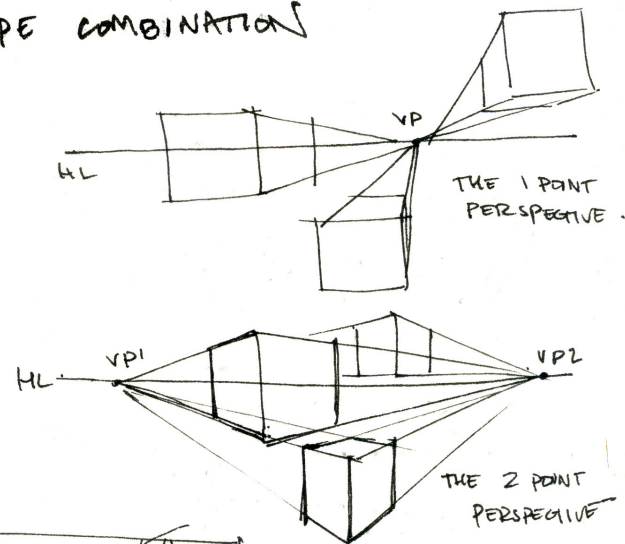 PE COMBINATION
VP
HL
THE 1 POINT
PERSPECTIVE.
VP1
VP2
HL
THE 2 POINT
PERSPECTIVE